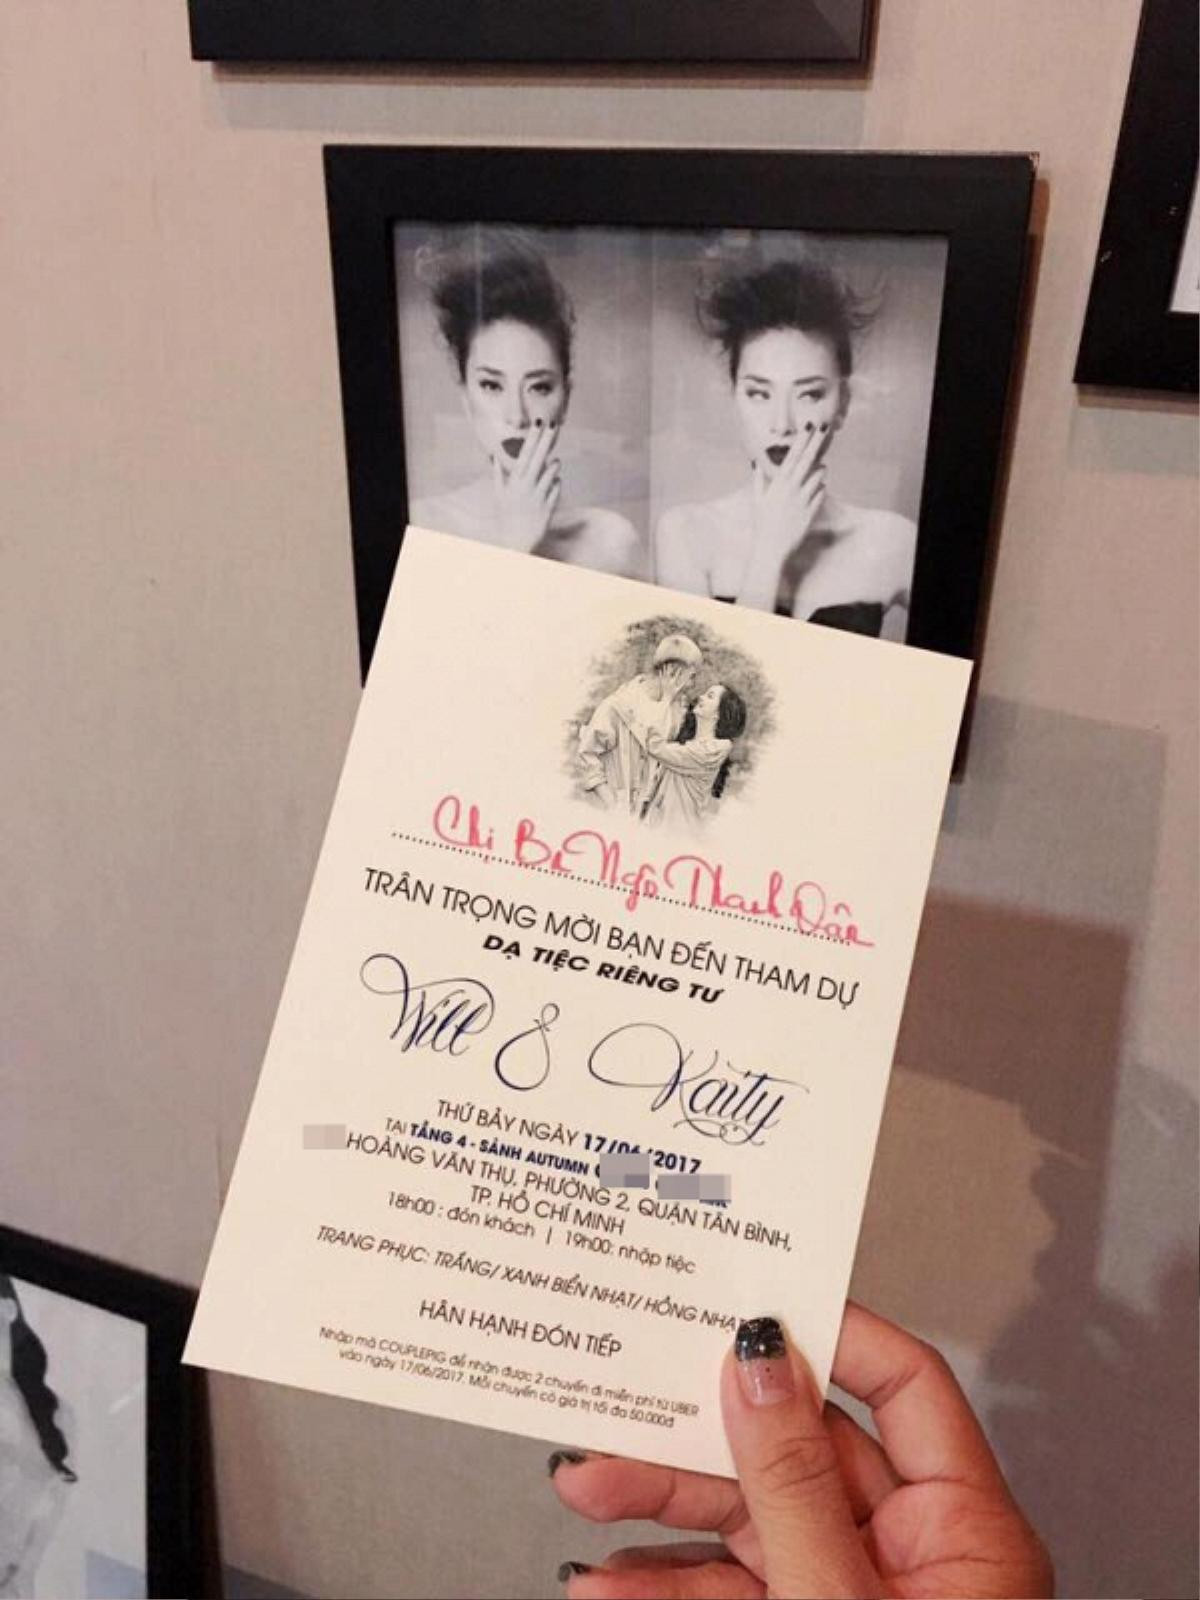 Chị Ba Ngô Thanh Vân
TRÂN TRỌNG MỜI BẠN ĐẾN THAM DỰ
DẠ TIỆC RIÊNG TƯ
Will & Kaity
THỨ BẢY NGÀY 17/06/2017
TẠI TẦNG 4 - SẢNH AUTUMN
HOÀNG VĂN THỤ, PHƯỜNG 2, QUẬN TÂN BÌNH,
TP. HỒ CHÍ MINH
18h00 : đón khách | 19h00: nhập tiệc
TRANG PHỤC: TRẮNG/ XANH BIỂN NHẠT/ HỒNG NHẠT
HÂN HẠNH ĐÓN TIẾP
Nhập mã COUPLEPIG để nhận được 2 chuyến đi miễn phí từ UBER
vào ngày 17/06/2017. Mỗi chuyến có giá trị tối đa 50.000đ